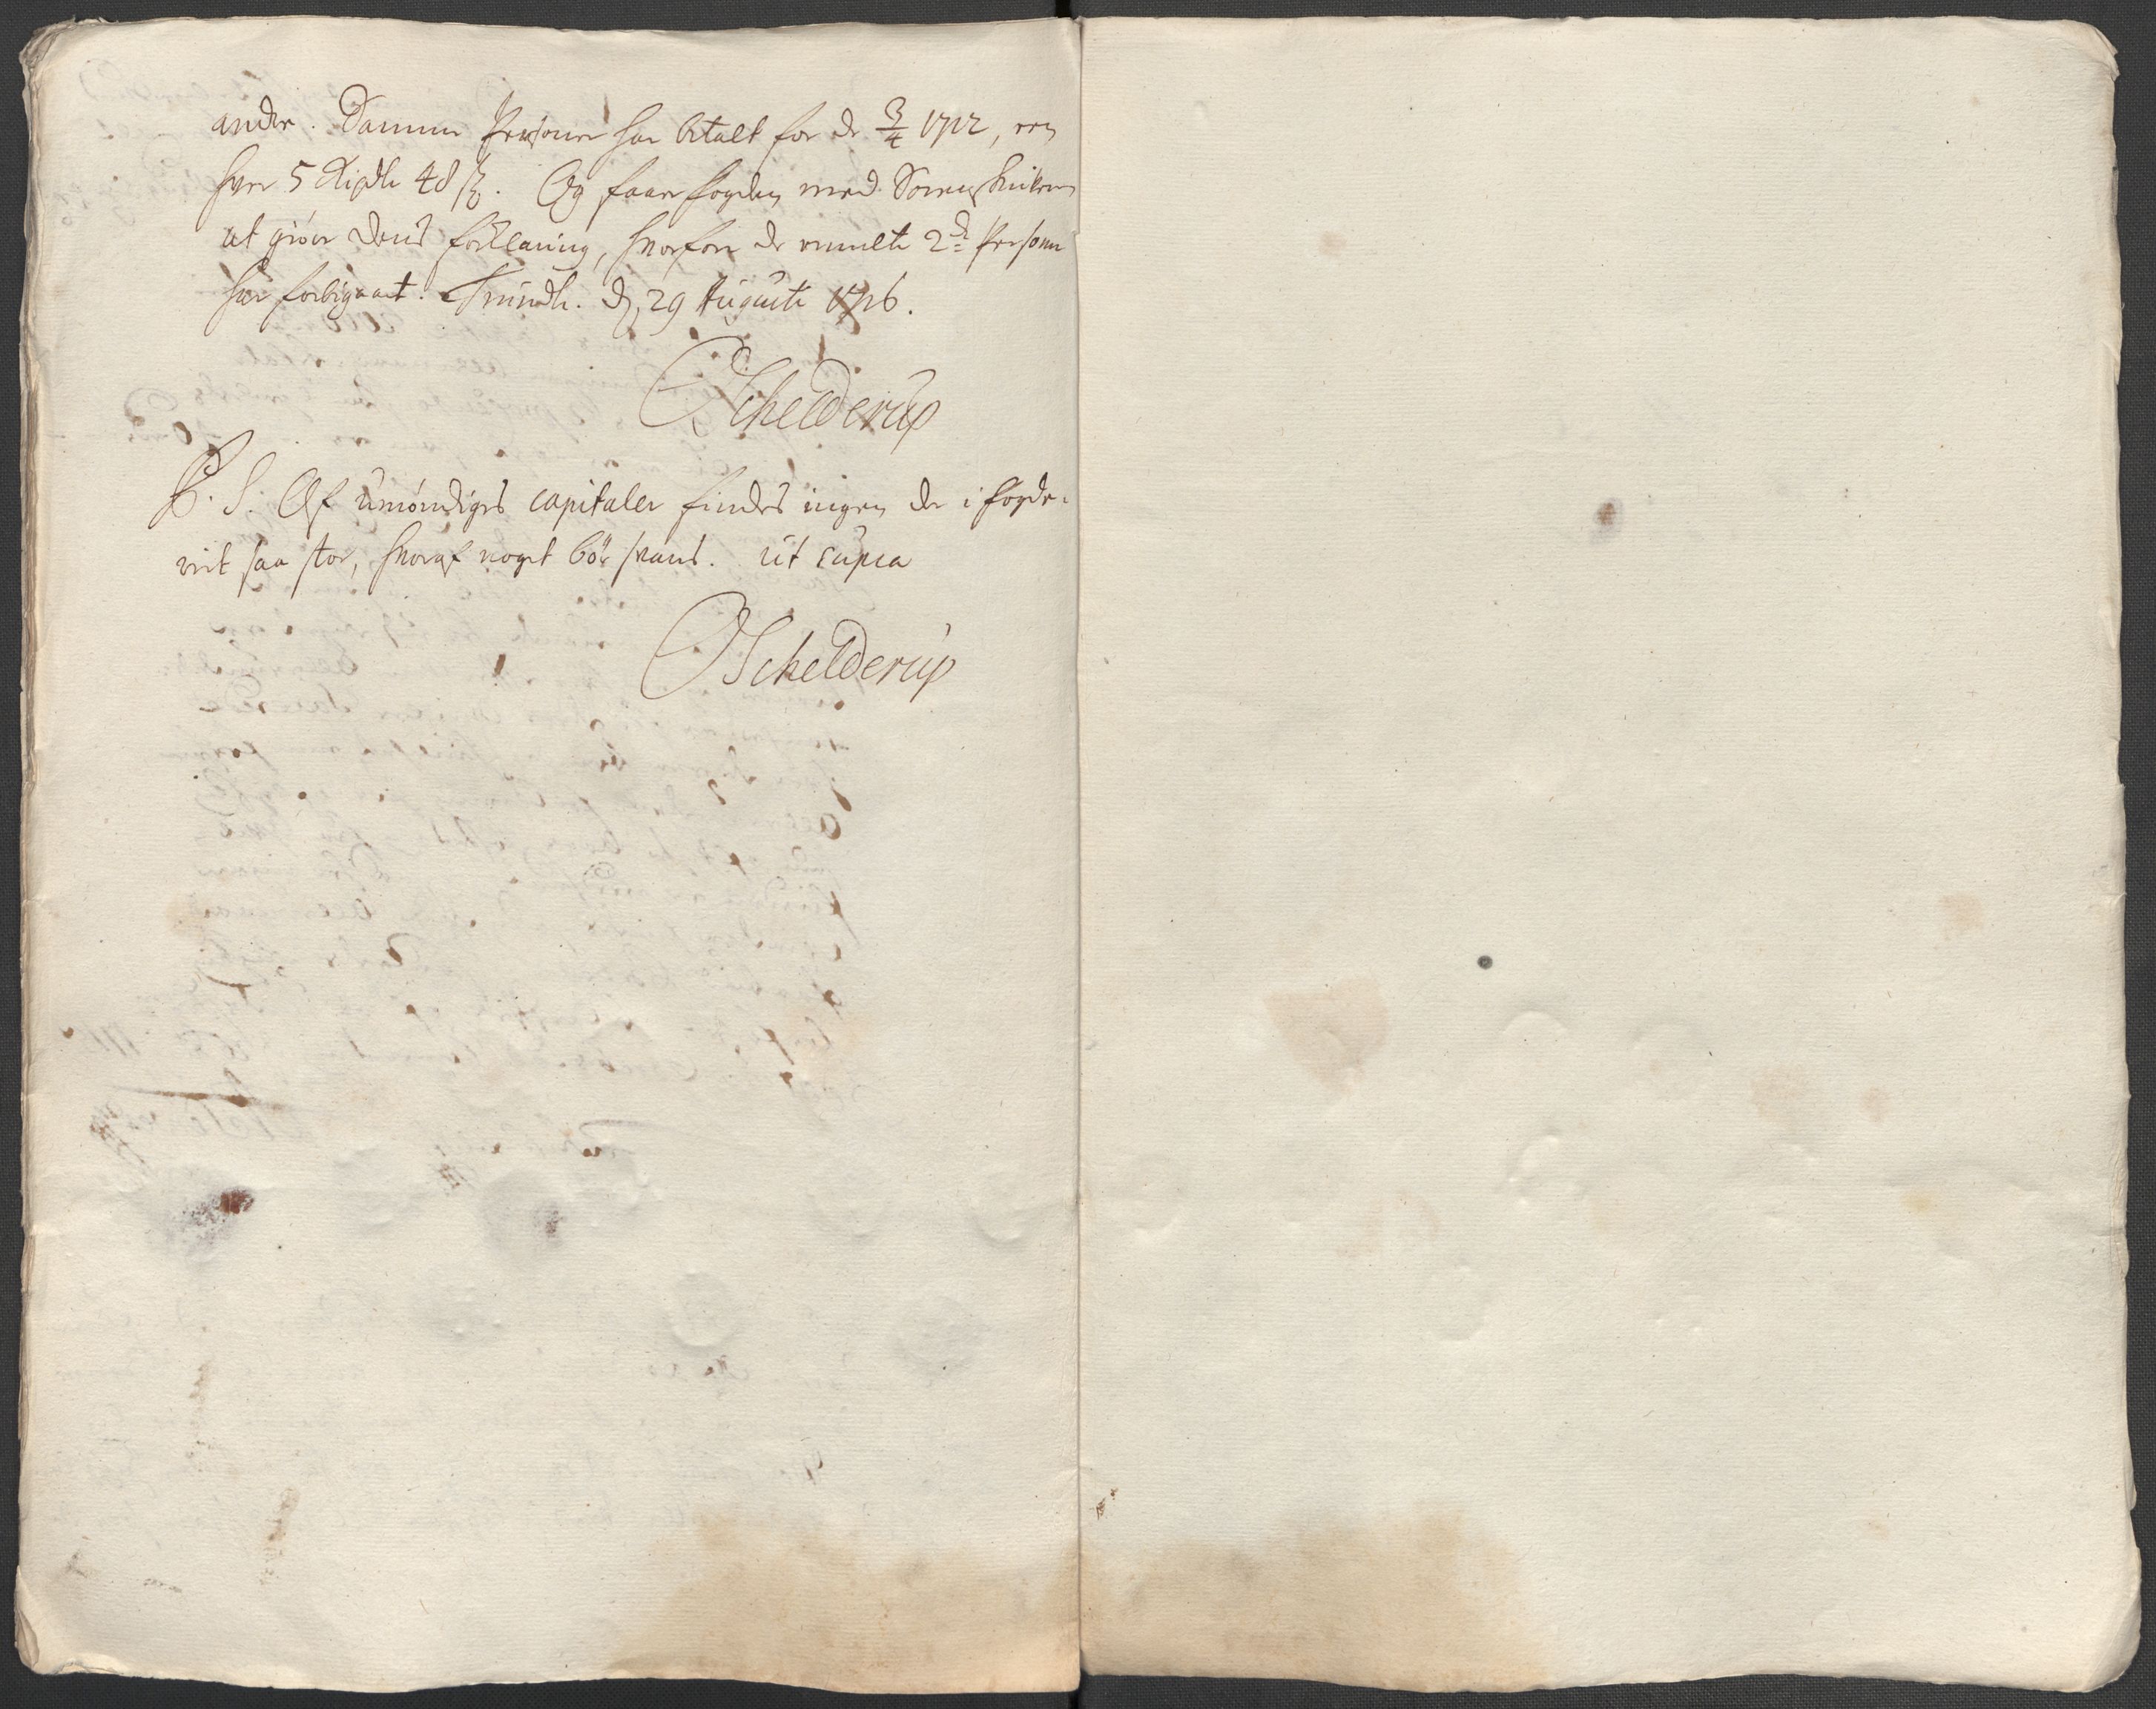 andre. Samme Personer har betalt for de 3/4 1712, een
hver 5 Rixdlr 48 ß. Og faar fogden med Sorenskriveren
at giøre deris forklaring, hvorfore de 2de Personer
har forbigaaet. Trundh. d. 29 Augusti 1716.
Schelderup
P. S. Af umöndiges capitaler findes ingen der i fogde-
riet saa stor, hvoraf noget bör svares. ut supra
Schelderup